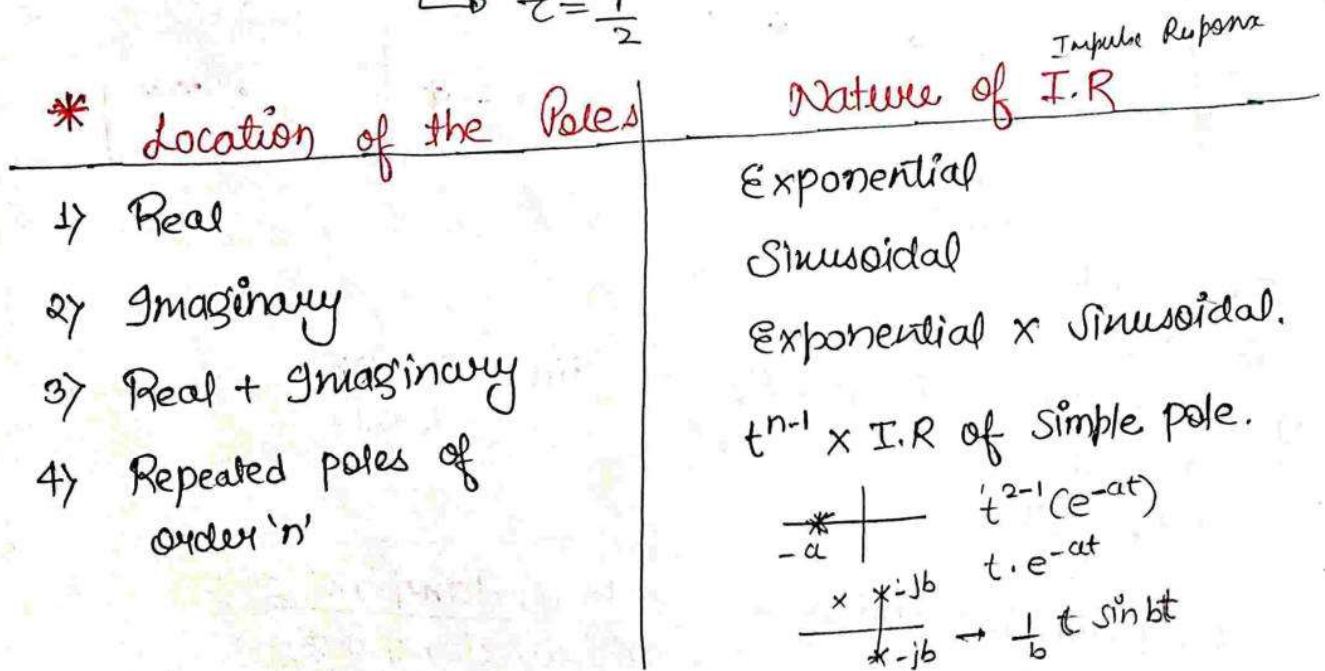 τ = 1/2
* Location of the Poles | Nature of I.R
Impulse Response
1) Real | Exponential
2) Imaginary | Sinusoidal
3) Real + Imaginary | Exponential x Sinusoidal.
4) Repeated poles of order 'n' | t^{n-1} x I.R of simple pole.
-a t^{2-1} (e^{-at})
t . e^{-at}
x -jb
-jb → 1/b t sin bt